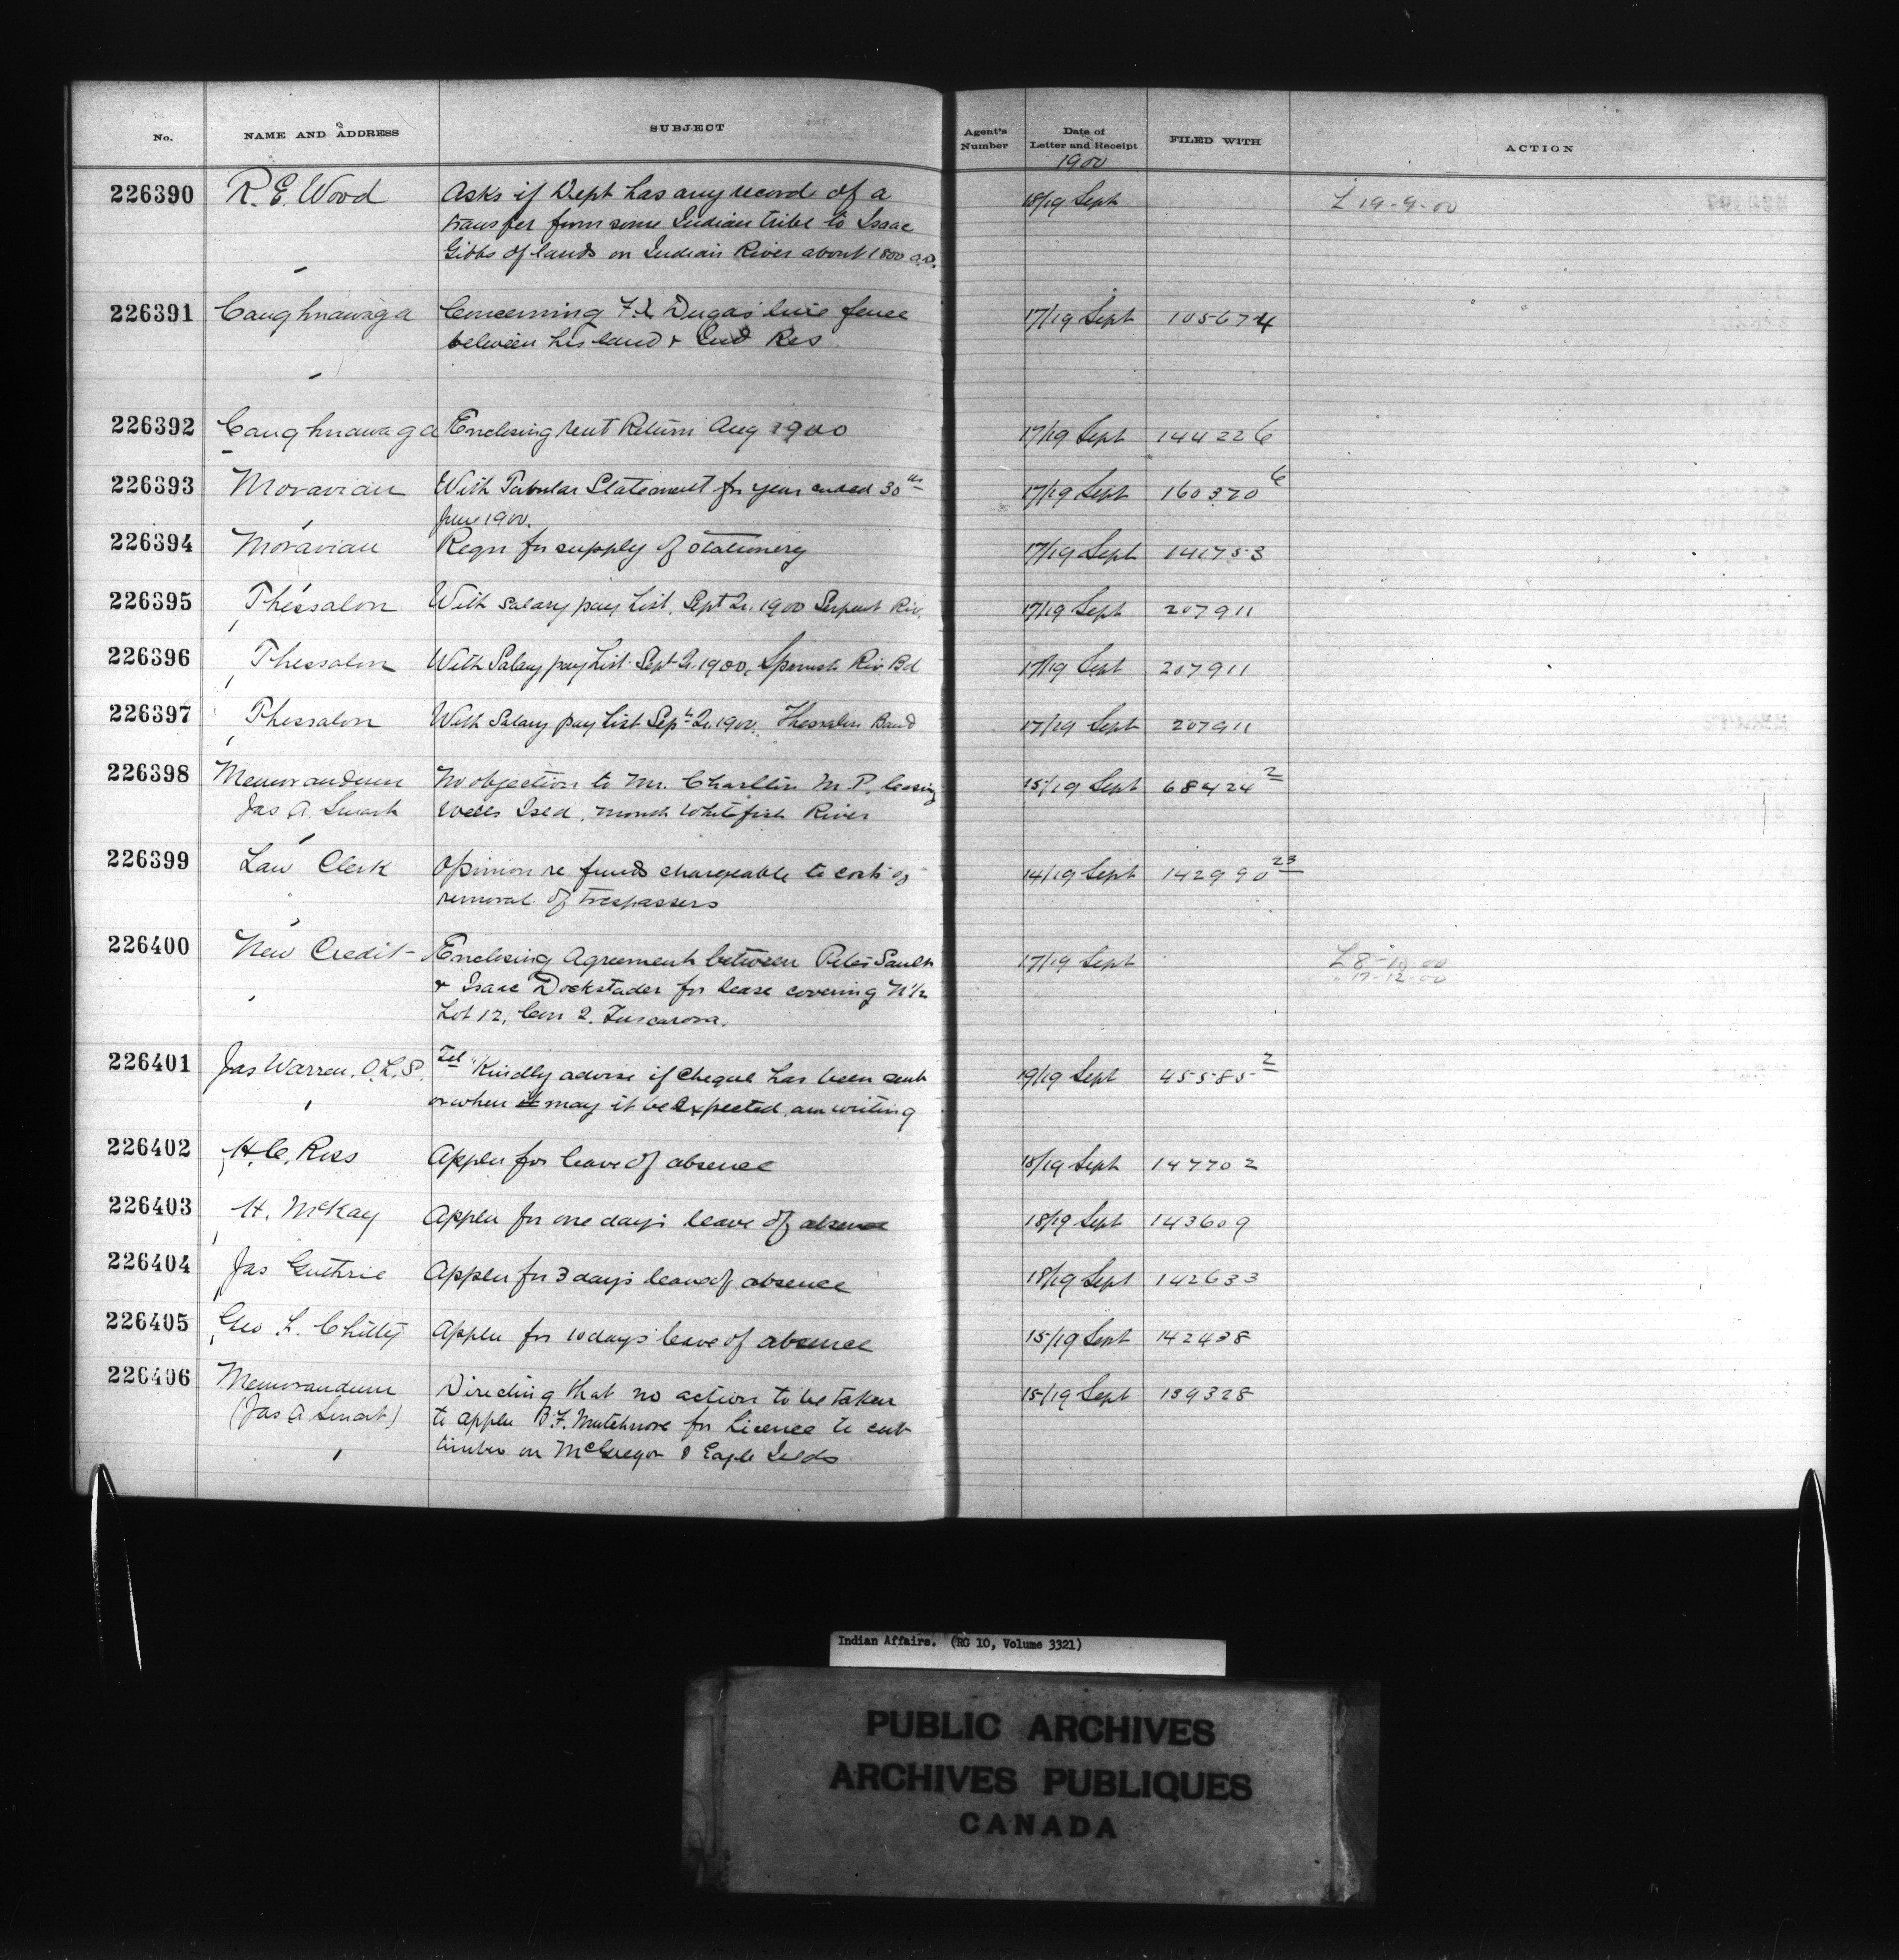 No. NAME AND ADDRESS SUBJECT Agent's Number Date of Letter and Receipt FILED WITH ACTION
1900
226390 R. E. Wood Asks if Dept has any record of a 18/19 Sept L 19-9-00
transfer from some Indian tribe to Isaac
Gibbs of lands on Indian River about 1800 a.d.
226391 Caughnawaga Concerning F. X Dugas' line fence 17/19 Sept 105674
between his land & Ind Res
226392 Caughnawaga Enclosing rent Return Aug 1900 17/19 Sept 144226
226393 Moravian With Tabular Statement for year ended 30th 17/19 Sept 160370 6
June 1900.
226394 Moravian Reqn for supply of stationery 17/19 Sept 141753
226395 Thessalon With salary pay List, Sept Qr. 1900 Serpent Riv. 17/19 Sept 207911
226396 Thessalon With Salary pay List Sept Qr. 1900, Spanish Riv. Bd 17/19 Sept 207911
226397 Thessalon With Salary pay List Sept Qr. 1900. Thessalon Band 17/19 Sept 207911
226398 Memorandum No objection to Mr. Charlton M. P. leasing 15/19 Sept 68424 2
Jas A. Smart Wells Isld, mouth Whitefish River
226399 Law Clerk Opinion re funds chargeable to cost of 14/19 Sept 142990 23
removal of trespassers
226400 New Credit Enclosing Agreement between Peter Sault 17/19 Sept L 8-10-00
& Isaac Dockstader for lease covering N 1/2 " 17-12-00
Lot 12, Con 2. Tuscarora.
226401 Jas Warren. O. L. S. Tel "Kindly advise if cheque has been sent 19/19 Sept 45585 2
or when it may it be expected, am writing
226402 H. C. Ross Appln for leave of absence 18/19 Sept 147702
226403 H. McKay Appln for one day's leave of absence 18/19 Sept 143609
226404 Jas Guthrie Appln for 3 days leave of absence 18/19 Sept 142633
226405 Geo L. Chitty Appln for 10 days' leave of absence 15/19 Sept 142438
226406 Memorandum Directing that no action to be taken 15/19 Sept 139328
(Jas A Smart) to appln B. F. Mutchmore for Licence to cut
timber on McGregor & Eagle Islds
Indian Affairs. (RG 10, Volume 3321)
PUBLIC ARCHIVES
ARCHIVES PUBLIQUES
CANADA